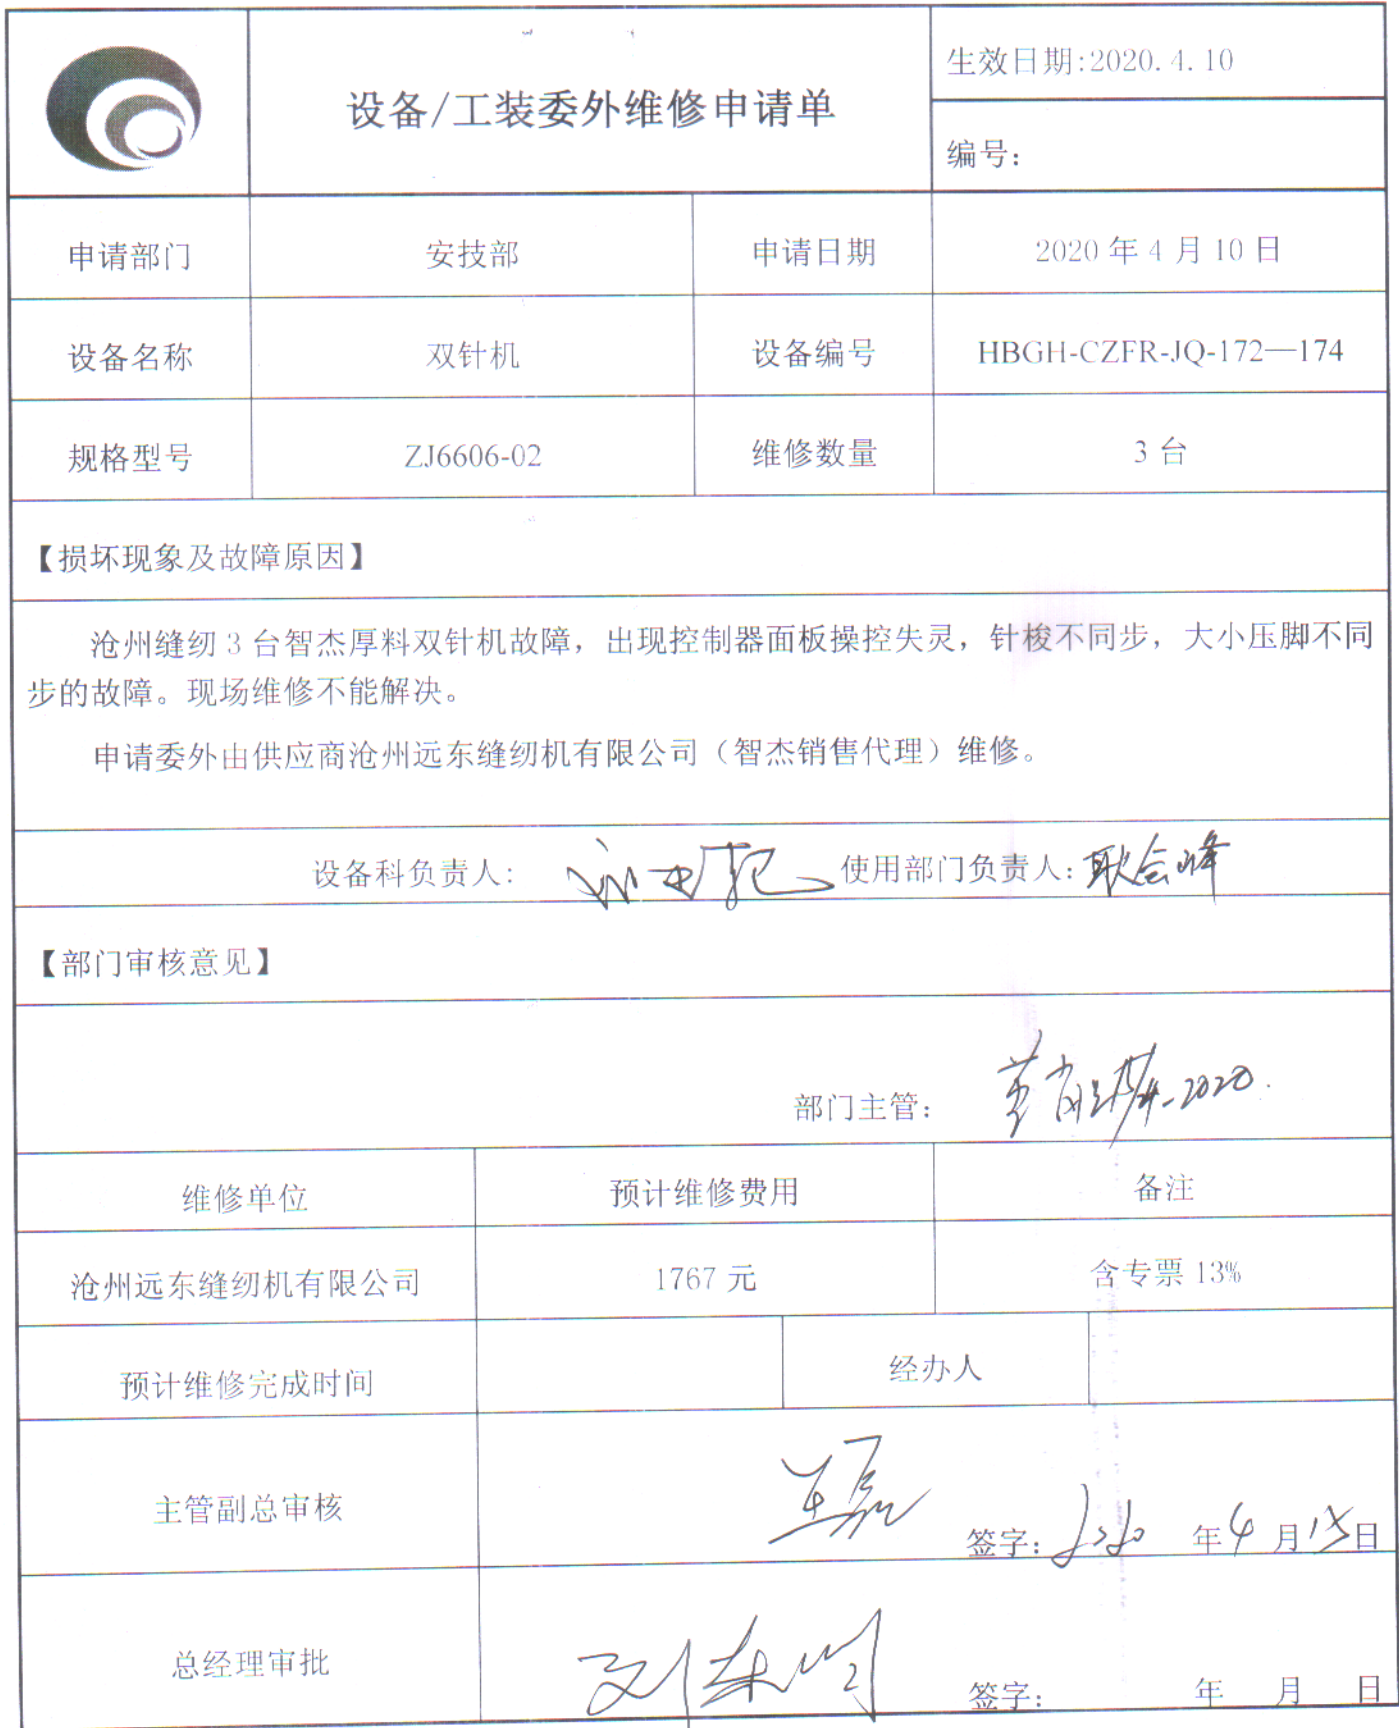 设备/工装委外维修申请单
生效日期:2020.4.10
编号:
申请部门 安技部 申请日期 2020 年 4 月 10 日
设备名称 双针机 设备编号 HBGH-CZFR-JQ-172—174
规格型号 ZJ6606-02 维修数量 3 台
【损坏现象及故障原因】
沧州缝纫 3 台智杰厚料双针机故障，出现控制器面板操控失灵，针梭不同步，大小压脚不同
步的故障。现场维修不能解决。
申请委外由供应商沧州远东缝纫机有限公司（智杰销售代理）维修。
设备科负责人: 使用部门负责人: 耿会峰
【部门审核意见】
部门主管: 2020.
维修单位 预计维修费用 备注
沧州远东缝纫机有限公司 1767 元 含专票 13%
预计维修完成时间 经办人
主管副总审核 王磊 签字: 2020 年 4 月 15 日
总经理审批 签字: 年 月 日